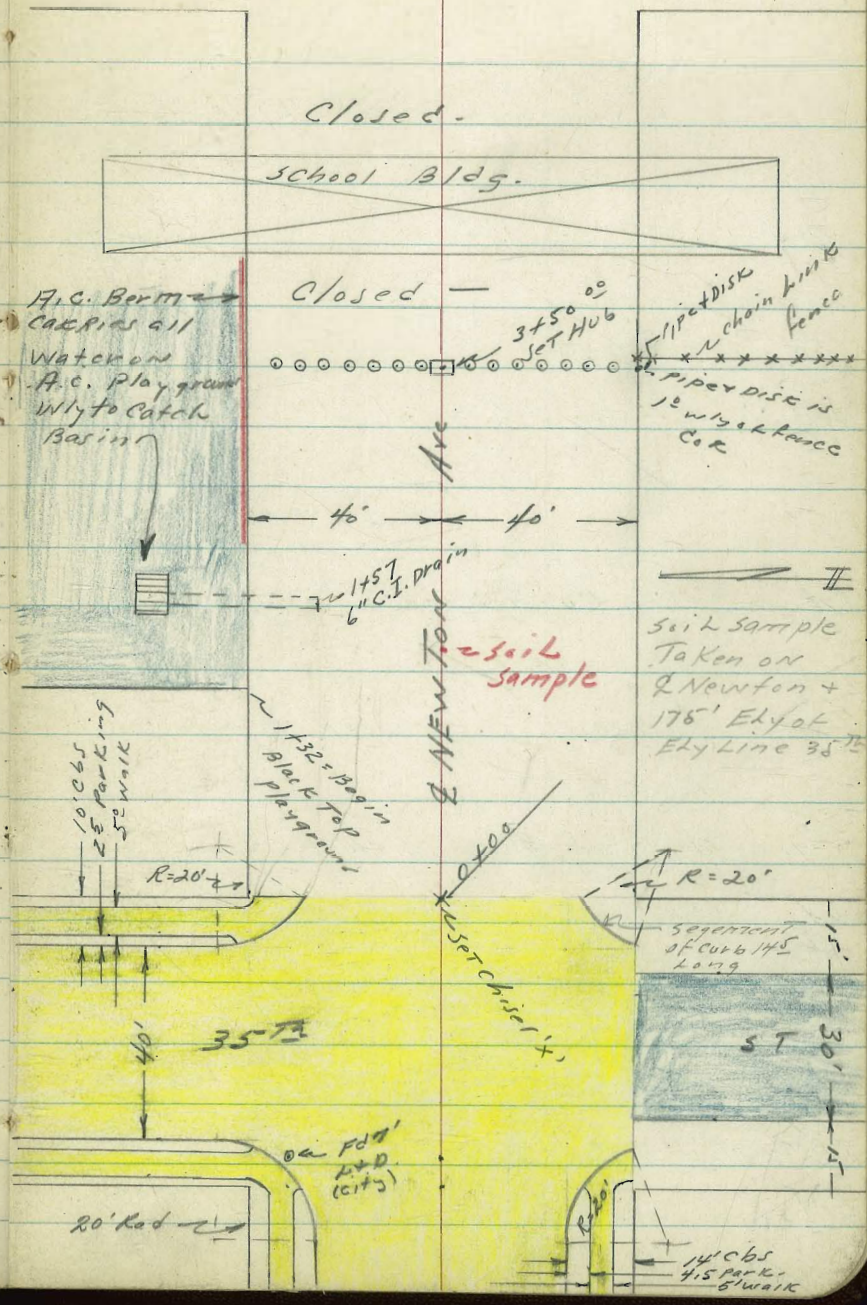 Closed -
School Bldg.
A.C. Berm
Carries all
Water on
A.C. Playgroun
Wly to Catch
Basin
Closed —
3+50 00
Set Hub
Pipe+Disk
Chain Link
fence
Pipe+Disk is
1° wly of fence
Cor
40'
40'
NEWTON Ave
1+57
6" C.I. Drain
Soil
Sample
Soil Sample
Taken on
℄ Newton +
175' Ely of
Ely Line 35th
1+32 = Begin
Black Top
Playground
10' Cbs
2⁵ Parking
5° Walk
R=20'
0+00
R=20'
Segement
of Curb 14⁵
Long
Set Chisel 'x'
15'
30'
15'
35th
ST
40'
Fd 7'
L+D
(City)
20' Rad
R=20'
14' Cbs
4.5 Park.
5' Walk